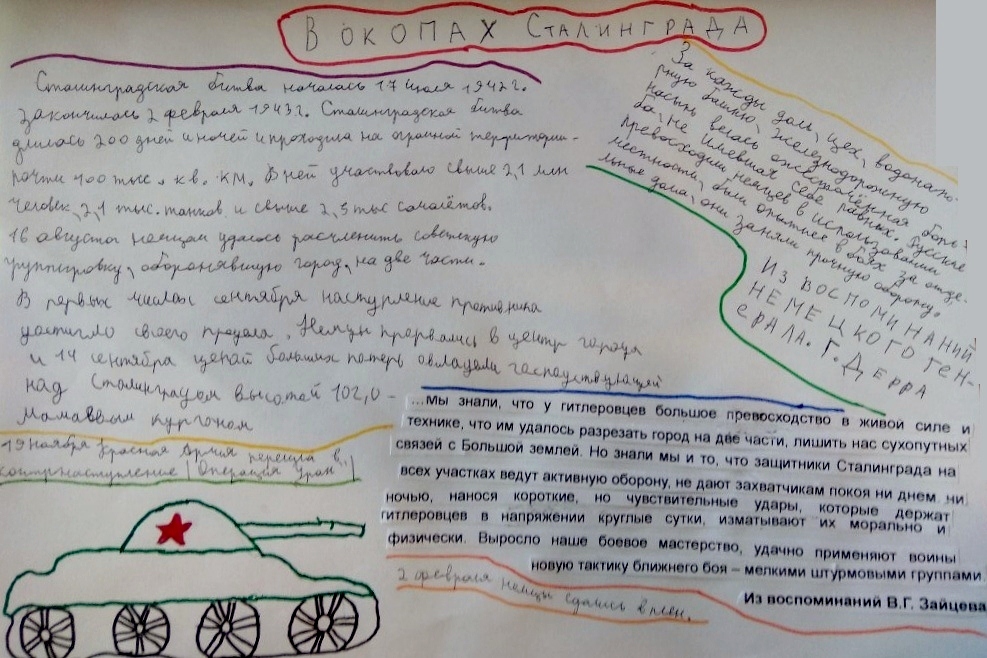 В ОКОПАХ СТАЛИНГРАДА
Сталинградская битва началась 17 июля 1942г.
закончилась 2 февраля 1943г. Сталинградская битва
длилась 200 дней и ночей и проходила на огромной территории -
почти 400 тыс. кв. км. В ней участвовало свыше 2,1 млн
человек, 2,1 тыс. танков и свыше 2,5 тыс самолётов.
16 августа немцам удалось расчленить советскую
группировку, оборонявшую город, на две части.
В первых числах сентября наступление противника
достигло своего предела. Немцы прорвались в центр города
и 14 сентября ценой больших потерь овладели господствующей
над Сталинградом высотой 102,0 -
Мамаевым курганом
19 ноября Красная Армия перешла в
контрнаступление (Операция Уран)
За каждый дом, цех, водонапо-
рную башню, железнодорожную
насыпь велась ожесточённая борь-
ба, не имевшая себе равных. Русские
превосходили немцев в использовании
местности, были опытнее в боях за отде-
льные дома, они заняли прочную оборону.
ИЗ ВОСПОМИНАНИЙ
НЕМЕЦКОГО ГЕН-
ЕРАЛА. Г. ДЕРРА
...мы знали, что у гитлеровцев большое превосходство в живой силе и
технике, что им удалось разрезать город на две части, лишить нас сухопутных
связей с Большой землей. Но знали мы и то, что защитники Сталинграда на
всех участках ведут активную оборону, не дают захватчикам покоя ни днем, ни
ночью, нанося короткие, но чувствительные удары, которые держат
гитлеровцев в напряжении круглые сутки, изматывают их морально и
физически. Выросло наше боевое мастерство, удачно применяют воины
новую тактику ближнего боя – мелкими штурмовыми группами
Из воспоминаний В.Г. Зайцева
2 февраля немцы сдались в плен.